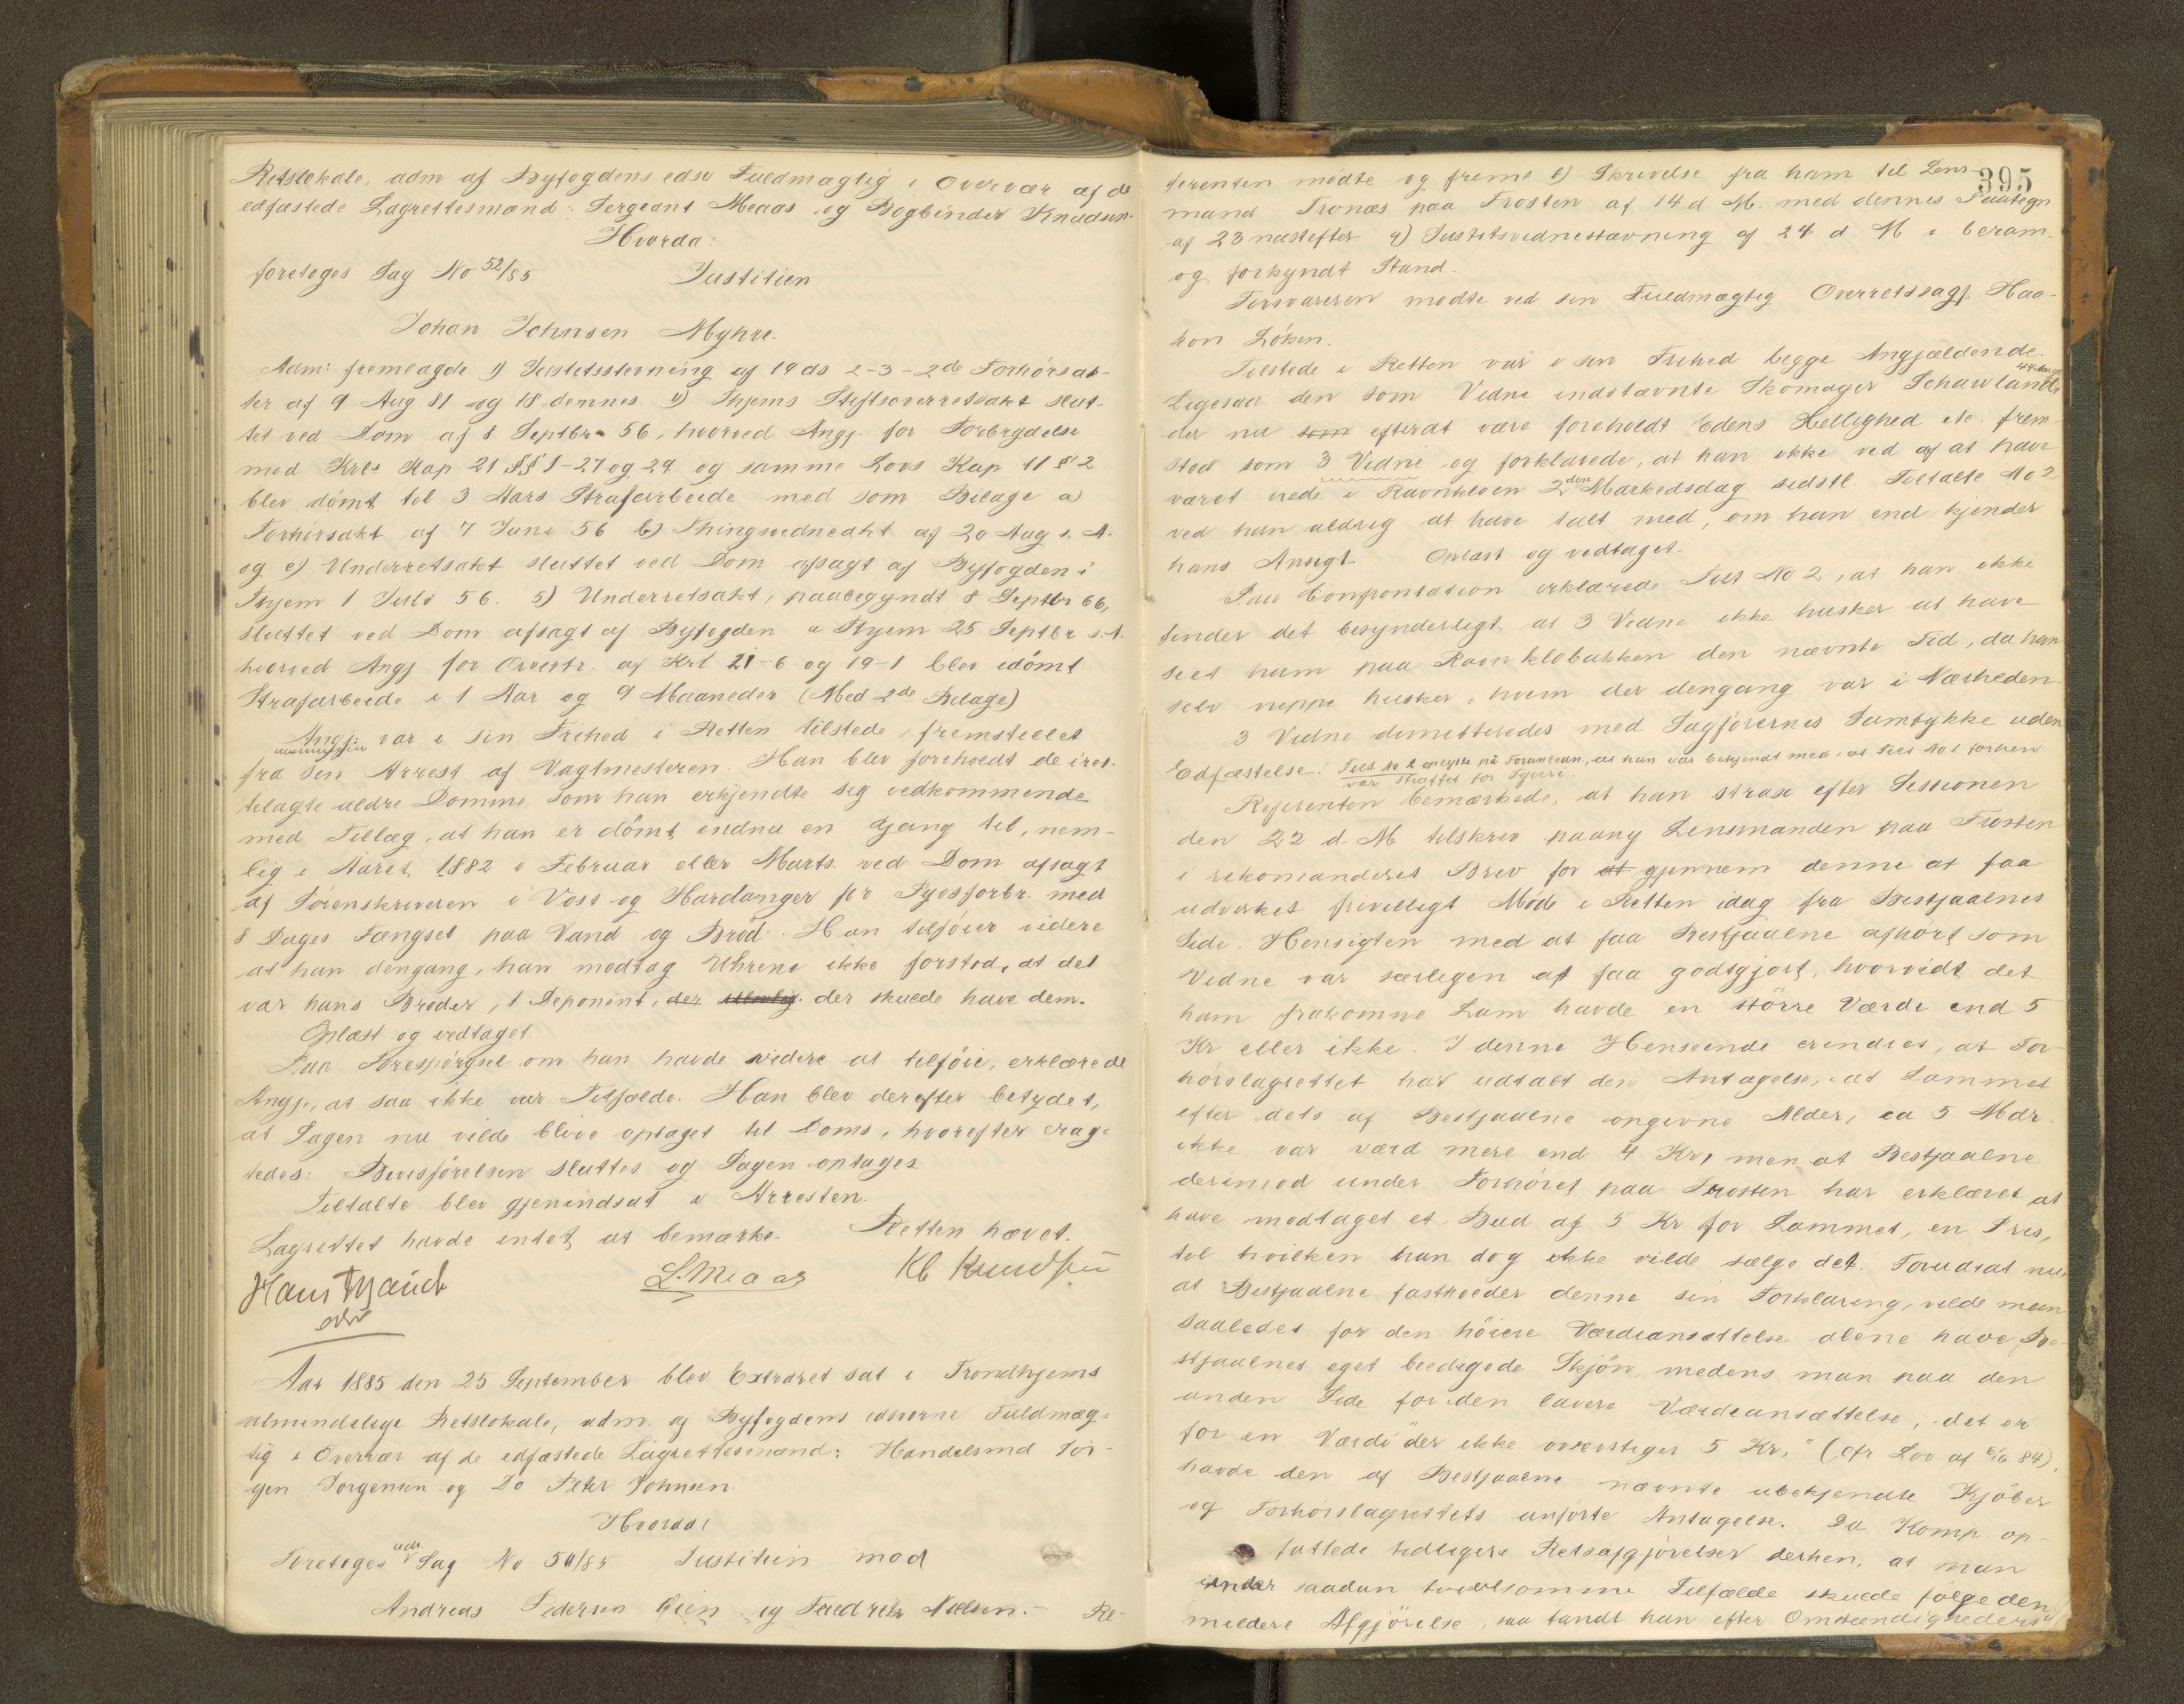 Retslokale, adm af Byfogdens edsv Fuldmægtig i Overvær af de
edfæstede Lagrettesmænd: Sergeant Meaas og Bogbinder Knudsen.
Hvorda:
foretoges Sag No 52/85 Justitien
Johan Johnsen Myhre.
Adm: fremlagde 1) Justitsstevning af 19 ds 2-3-2de Forhørsak-
ter af 9 Aug 81 og 18 dennes 4) Thjems Stiftsoverretsakt slut-
tet ved Dom af 8 Septbr 56, hvorved Angj. for Forbrydelse
mod Krls Kap 21 §§ 1-27 og 29 og samme Lovs Kap 11 § 2
blev dømt til 3 Aars Strafarbeide med som Bilage a)
Forhørsakt af 7 Juni 56 b) Thingsvidneakt af 20 Aug s. A.
og c) Underretsakt sluttet ved Dom afsagt af Byfogden i
Thjem 1 Juli 56. 5) Underretsakt, paabegyndt 8 Septbr 66,
sluttet ved Dom afsagt af Byfogden i Thjem 25 Septbr s. A.
hvorved Angj for Overtr. af Krl 21-6 og 19-1 blev idømt
Strafarbeide i 1 Aar og 9 Maaneder (Med 2de Bilage)
Angj. var i sin Frihed i Retten tilstede, fremstillet
fra sin Arrest af Vagtmesteren. Han blev foreholdt de ires-
telagte ældre Domme, som han erkjendte sig vedkommende
med Tillæg, at han er dømt endnu en Gang til, nem-
lig i Aaret 1882 i Februar eller Marts ved Dom afsagt
af Sorenskriveren i Voss og Hardanger for Tyvsforbr. med
8 Dages Fængsel paa Vand og Brød. Han tilføier videre
at han dengang, han modtog Uhrene ikke forstod, at det
var hans Broder, 1 Deponent, der der skulde have dem.
Oplæst og vedtaget.
Paa Forespørgsel om han havde videre at tilføie, erklærede
Angj., at saa ikke var Tilfælde. Han blev derefter betydet,
at Sagen nu vilde blive optaget til Doms, hvorefter erag-
tedes: Bevisførelsen sluttes og Sagen optages
Tiltalte blev gjenindsat i Arresten.
Lagrettet havde intet at bemærke. Retten hævet.
L. Meaas Kl Knudsen
Aar 1885 den 25 September blev Extraret sat i Trondhjems
almindelige Retslokale, adm. af Byfogdens edsvorne Fuldmæg-
tig i Overvær af de edfæstede Lagrettesmænd: Handelsmd Jør-
gen Jorgensen og Do Peter Johnsen.
Hvorda:
Foretoges Sag No 50/85 Justitien mod
Andreas Pedersen Oien og Fredrik Nielsen. Re-
395
ferenten mødte og fremlE) Skrivelse fra ham til Lens-
mand Tronæs paa Frosten af 14 d M. med dennes Paategn
af 23 næstefter 4) Justitsvidnestævning af 24 d M i beram-
og forkyndt Stand.
Forsvareren mødte ved sin Fuldmægtig Overretssagf. Haa-
kon Løken.
Tilstede i Retten var i sin Frihed begge Angjældende.
Ligesaa den som Vidne indstævnte Skomager Schauland
der nu som efterat være foreholdt Edens Hellighed etc. frem-
stod som 3 Vidne og forklarede, at han ikke ved af at have
været nede i Ravnkloen 2den Markedsdag sidstl. Tiltalte No 2
ved han aldrig at have talt med, om han end kjender
hans Ansigt. Oplæst og vedtaget.
Paa Confrontation erklærede Tilt No 2, at han ikke
finder det besynderligt at 3 Vidne ikke husker at have
seet ham paa Ravnklobakken den nævnte Tid, da han
selv neppe husker, hvem der dengang var i Nærheden
3 Vidne dimitteredes med Sagførernes Samtykke uden
Edfæstelse. Tilt No 2 oplyste på Foranledn., at han var bekjendt med, at Tilt No 1 forhen
var straffet for Tyveri.
Referenten bemærkede, at han strax efter Sessionen
den 22 d. M tilskrev paany Lensmanden paa Frosten
i rekomanderet Brev for at gjennem denne at faa
udvirket frivilligt Møde i Retten idag fra Bestjaalnes
Side. Hensigten med at faa Bestjaalne afhørt som
Vidne var særligen at faa godtgjort, hvorvidt det
ham frakomne Lam havde en större Værdi end 5
Kr eller ikke. I denne Henseende erindres, at For-
hørslagrettet har udtalt den Antagelse, at Lammet
efter dets af Bestjaalne opgivne Alder, ca 5 Mdr.
ikke var værd mere end 4 Kr, men at Bestjaalne
derimod under Forhøret paa Frosten har erklæret at
have modtaget et Bud af 5 Kr for Lammet, en Pris,
til hvilken han dog ikke vilde sælge det. Forudsat nu,
at Bestjaalne fastholder denne sin Forklaring, vilde man
saaledes for den høiere Værdiansættelse alene have Be-
stjaalnes eget beedigede Skjøn, medens man paa den
anden Side for den lavere Værdiansættelse, det er
for en Værdi "der ikke overstiger 5 Kr," (cfr Lov af 6/6 84),
havde den af Bestjaalne nævnte ubekjendte Kjøber
og Forhørslagrettets anførte Antagelse. Da Komp. op-
fattede tidligere Retsafgjørelser derhen, at man
under saadan tvivlsomme Tilfælde skulde følge den
mildere Afgjörelse, saa fandt han efter Omstændighederne